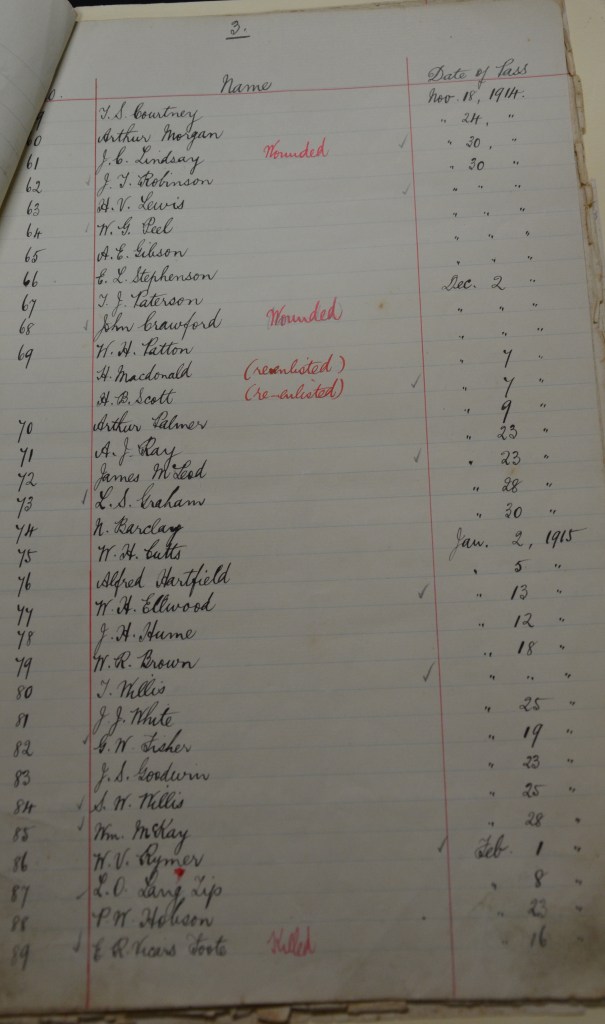 3.
Name Date of Pass
9 T. S. Courtney Nov. 18, 1914.
0 Arthur Morgan " 24, "
61 J. C. Lindsay Wounded " 30, "
62 J. T. Robinson " 30 "
63 H. V. Lewis " " "
64 W. G. Peel " " "
65 A. E. Gibson " " "
66 E. L. Stephenson " " "
67 T. J. Paterson Dec. 2 "
68 John Crawford Wounded " " "
69 W. H. Patton " " "
H. Macdonald (reenlisted) " 7 "
H. B. Scott (re-enlisted) " 7 "
70 Arthur Palmer " 9 "
71 A. J. Ray " 23 "
72 James McLeod " 23 "
73 L. S. Graham " 28 "
74 N. Barclay " 30 "
75 W. H. Cutts Jan. 2, 1915
76 Alfred Hartfield " 5 "
77 W. H. Ellwood " 13 "
78 J. H. Hume " 12 "
79 W. R. Brown " 18 "
80 T. Willis " " "
81 J. J. White " 25 "
82 G. W. Fisher " 19 "
83 J. S. Goodwin " 23 "
84 S. W. Willis " 25 "
85 Wm. McKay " 28 "
86 W. V. Rymer Feb. 1 "
87 L. O. Lang Zip " 8 "
88 P. W. Hobson " 23 "
89 E. R. Vicars Foote Killed " 16 "